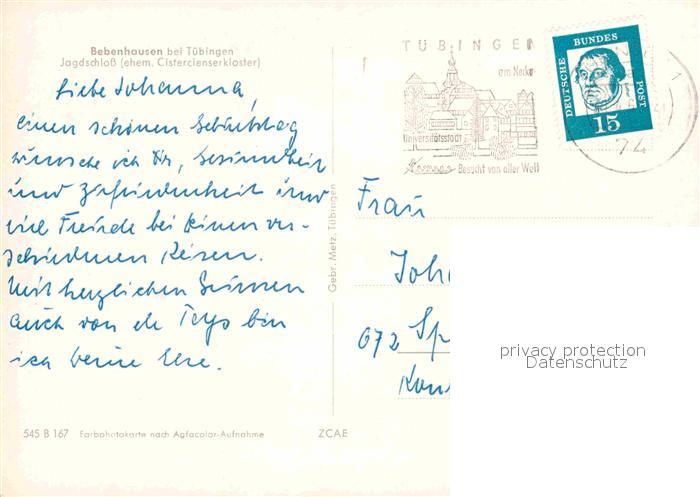 Bebenhausen bei Tübingen
Jagdschloß (ehem. Cistercienserkloster)
Liebe Johanna,
einen schönen Geburtstag
wünsche ich Dir, Gesundheit
und Zufriedenheit und
viel Freude bei Deinen ver-
schiedenen Reisen.
Mit herzlichen Grüssen
auch von
ich Deine
545 B 167 Farbphotokarte nach Agfacolor-Aufnahme
ZCAE
Gebr. Metz, Tübingen
TÜBINGEN
am Neckar
Universitätsstadt
Besucht von aller Welt
DEUTSCHE BUNDESPOST
15
74
Frau
Joh
672 Sp
Kon
privacy protection
Datenschutz